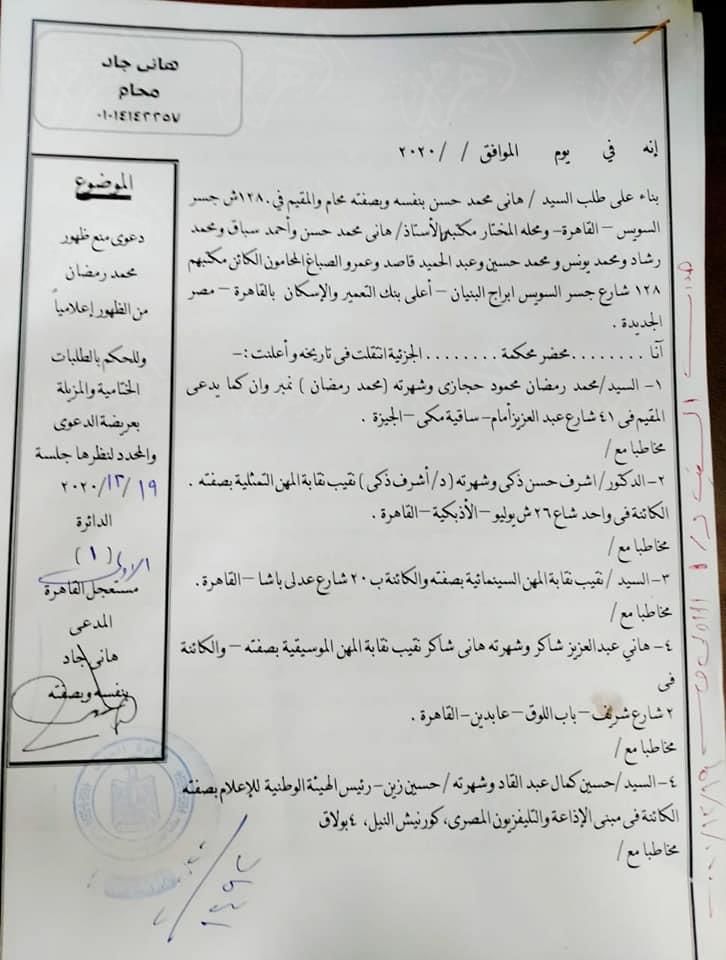 هانى جاد
محام
٠١٠١٤١٤٢٢٥٧
إنه في يوم الموافق / / ٢٠٢٠
بناء على طلب السيد / هانى محمد حسن بنفسه وبصفته محام والمقيم في ١٢٨٠ش جسر
السويس – القاهرة– ومحله المختار مكتب الأستاذ/ هانى محمد حسن وأحمد سباق ومحمد
رشاد ومحمد يونس و محمد حسين وعبد الحميد قاصد وعمرو الصباغ المحامون الكائن مكتبهم
١٢٨ شارع جسر السويس ابراج البنيان – أعلى بنك التعمير والإسكان بالقاهرة – مصر
الجديدة .
أنا ........ محضر محكمة ........ الجزئية انتقلت فى تاريخه وأعلنت :-
١– السيد/محمد رمضان محمود حجازى وشهرته (محمد رمضان ) نمبر وان كما يدعى
المقيم فى ٤١ شارع عبد العزيز أمام– ساقية مكى– الجيزة .
مخاطبا مع /
٢– الدكتور/ اشرف حسن ذكى وشهرته (د/أشرف ذكى) نقيب نقابة المهن التمثلية بصفته .
الكائنة فى واحد شاع ٢٦ ش يوليو – الأذبكية – القاهرة .
مخاطبا مع /
٣– السيد / نقيب نقابة المهن السينمائية بصفته والكائنة ب ٢٠ شارع عدلى باشا – القاهرة .
مخاطبا مع /
٤– هاني عبدالعزيز شاكر وشهرته هانى شاكر نقيب نقابة المهن الموسيقية بصفته – والكائنة
فى
٢ شارع شريف– باب اللوق– عابدين– القاهرة .
مخاطبا مع /
٤– السيد/حسين كمال عبد القاد وشهرته / حسين زين– رئيس الهيئة الوطنية للإعلام بصفته
الكائنة فى مبنى الإذاعة والتليفزيون المصرى، كورنيش النيل، ٤بولاق
مخاطبا مع /
الموضوع
دعوى منع ظهور
محمد رمضان
من الظهور إعلامياً
وللحكم بالطلبات
الختامية والمزيلة
بعريضة الدعوى
والمحدد لنظرها جلسة
١٩/ ١٢/ ٢٠٢٠
الدائرة
(١) الاولى
مستعجل القاهرة
المدعى
هانى جاد
بنفسه وبصفته